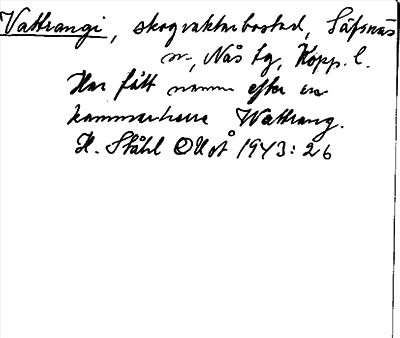 Vattrangi, skogvaktarbostad, Säfsnäs
sn, Nås tg, Kopp. l.
Har fått namn efter en
kammarherre Wattrang.
H. Ståhl Ou ot 1943: 26